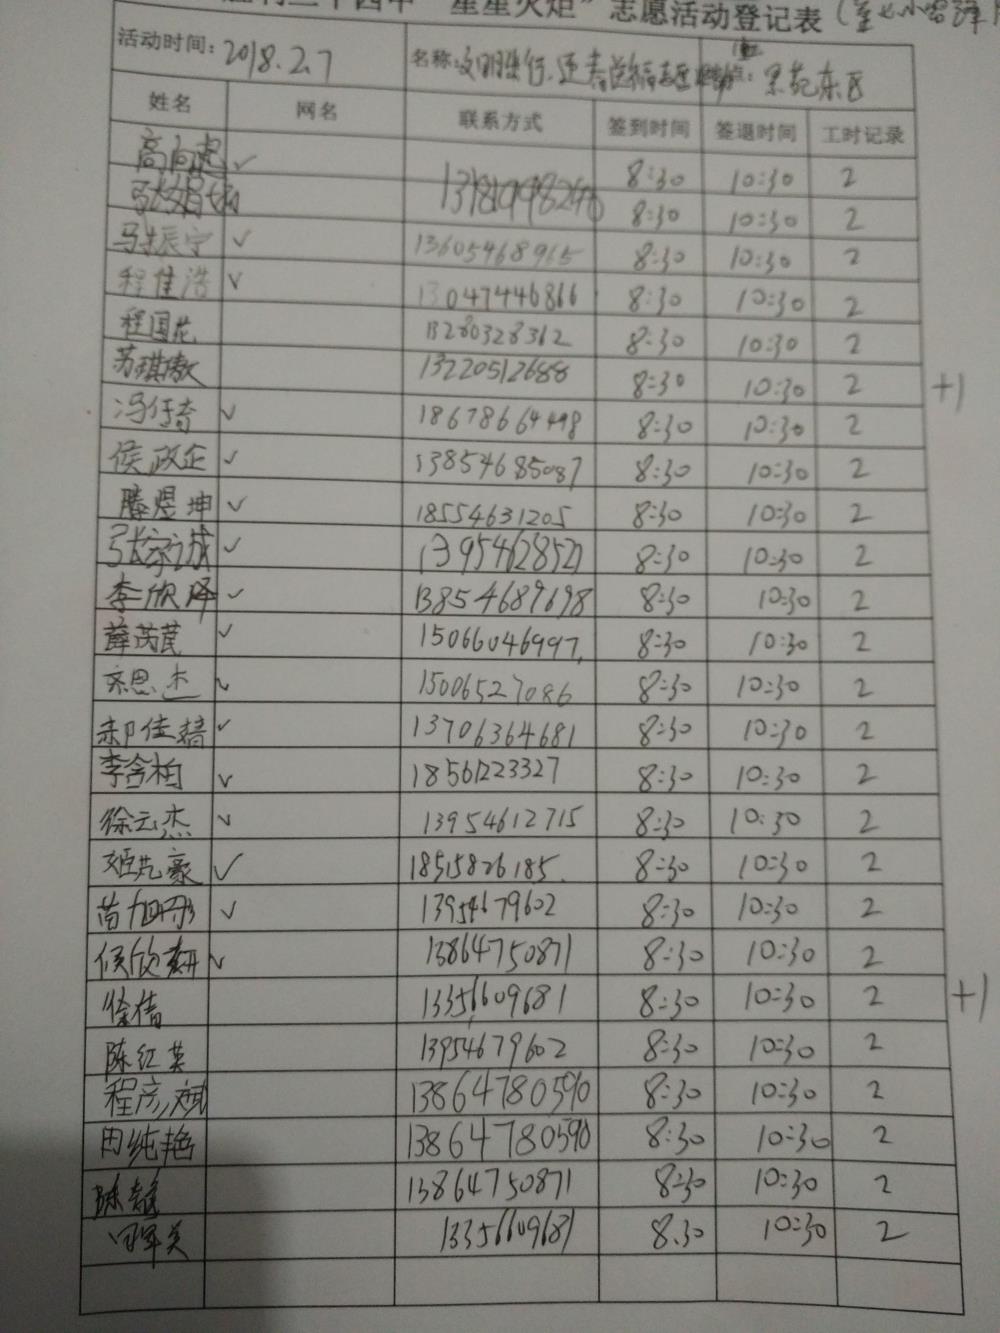 "星星火炬"志愿活动登记表
活动时间: 2018.2.7 名称: 点: 东区
姓名 网名 联系方式 签到时间 签退时间 工时记录
✓ 8:30 10:30 2
13181998240 8:30 10:30 2
马振宁 ✓ 13605468965 8:30 10:30 2
程佳浩 ✓ 13047446866 8:30 10:30 2
程国花 13280328362 8:30 10:30 2
苏琪傲 13220512688 8:30 10:30 2 +1
冯任奇 ✓ 18678664498 8:30 10:30 2
侯政企 ✓ 13854685087 8:30 10:30 2
滕煜坤 ✓ 18554631205 8:30 10:30 2
张家诚 ✓ 13954628521 8:30 10:30 2
李欣泽 ✓ 13854689698 8:30 10:30 2
薛芮芪 ✓ 15066046997 8:30 10:30 2
思杰 ✓ 15006527086 8:30 10:30 2
郝佳 ✓ 13706364681 8:30 10:30 2
李含柏 ✓ 18561223327 8:30 10:30 2
徐云杰 ✓ 13954612715 8:30 10:30 2
姬 豪 ✓ 18515826185 8:30 10:30 2
苗旭彤 ✓ 13954679602 8:30 10:30 2
侯欣 ✓ 13864750871 8:30 10:30 2
徐倩 13356609681 8:30 10:30 2 +1
陈红英 13954679602 8:30 10:30 2
程彦斌 13864780590 8:30 10:30 2
田纯艳 13864780590 8:30 10:30 2
13864750871 8:30 10:30 2
13356609681 8.30 10:30 2